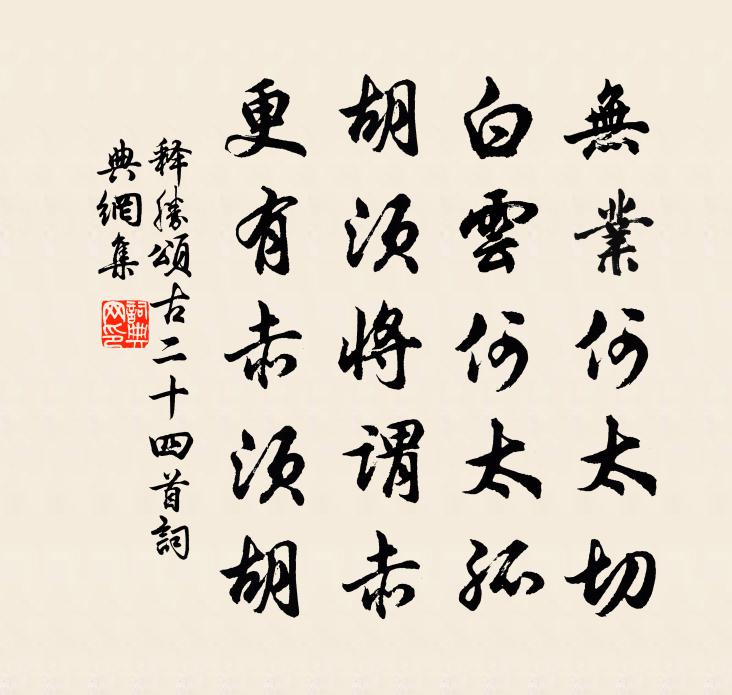 無業何太切
白雲何太孤
胡須將謂赤
更有赤須胡
释勝頌古二十四首詞
典網集
詞典
网印